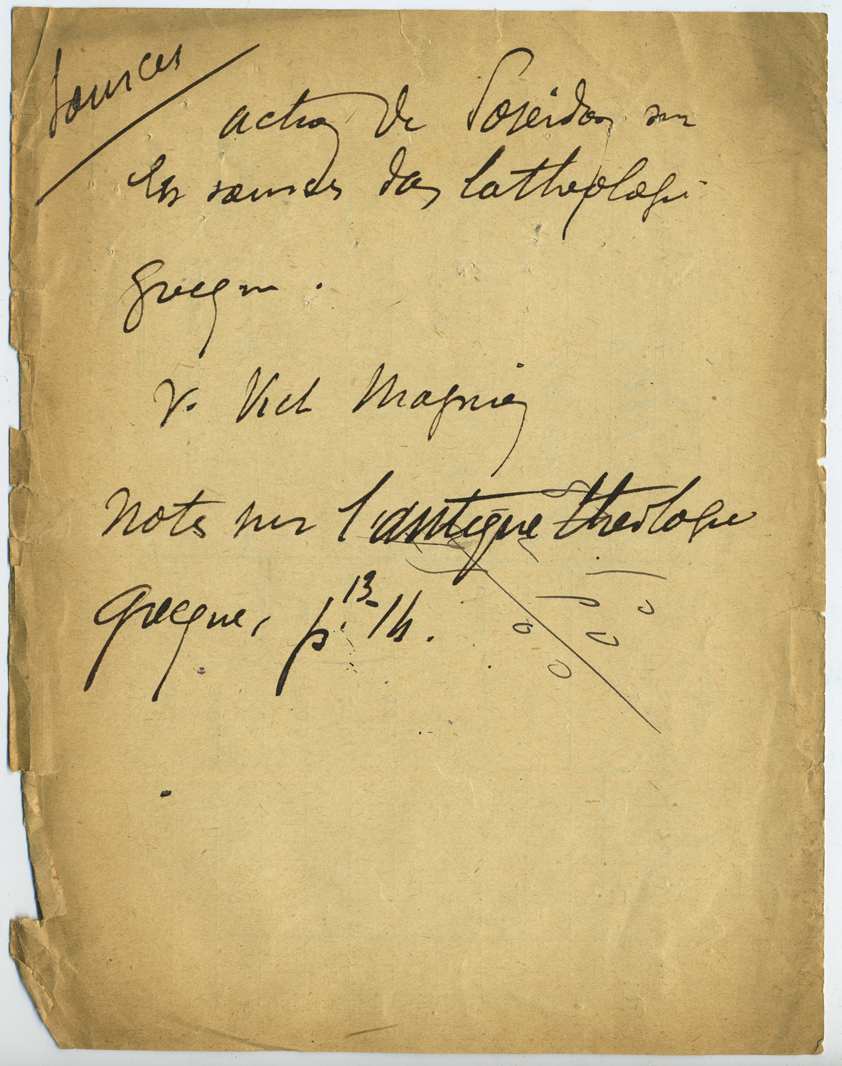 Sources
action de Poseidon sur
les sources dans la theologie
grecque.
V. Vict Magnien
Notes sur l'antique theologie
grecque, p. 13-14.